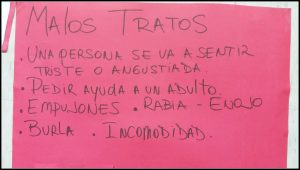 MALOS TRATOS
• UNA PERSONA SE VA A SENTIR
TRISTE O ANGUSTIADA.
• PEDIR AYUDA A UN ADULTO.
• EMPUJONES • RABIA - ENOJO
• BURLA • INCOMODIDAD.